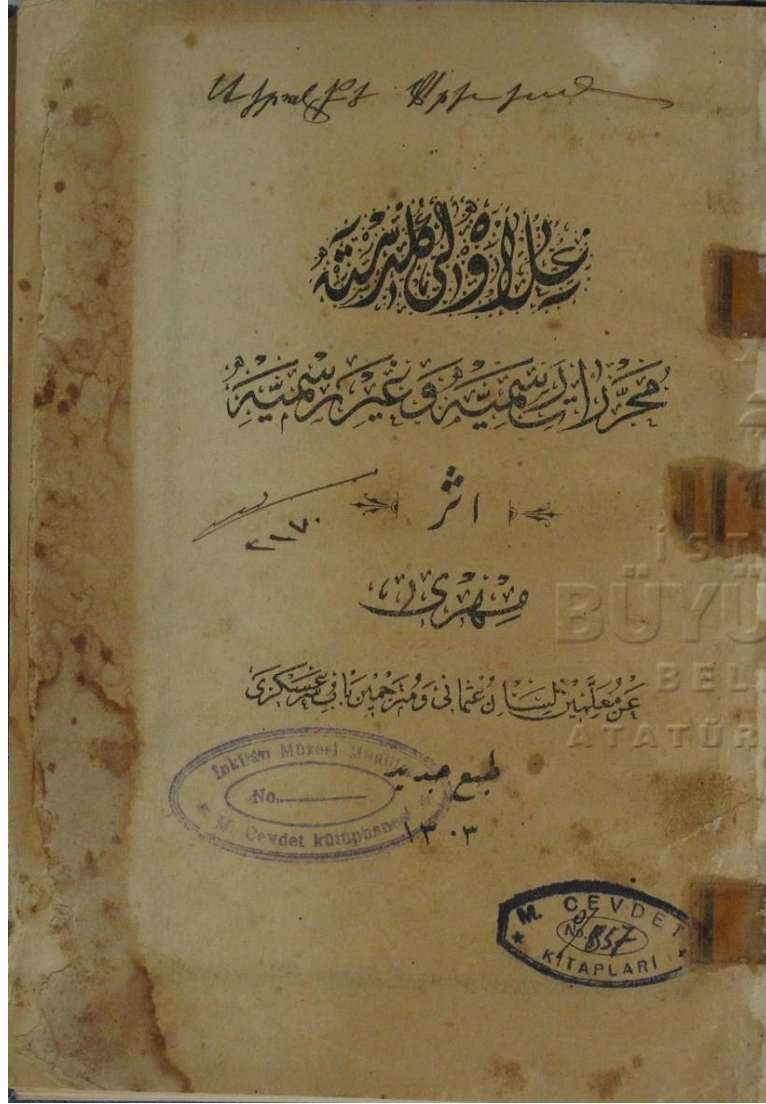 علاوه‌لی گلدسته
محررات رسمیه وغیر رسمیه
اثر
٢١٧٠
مهری
عن معلمین لسان عثمانی ومترجمین باب عسکری
طبع جدید
١٣٠٣
İnkılâp Müzesi
No.
M. Cevdet kütüphanesi
M. CEVDET
No. 857
KİTAPLARI
İST
BÜYÜ
BEL
ATATÜR